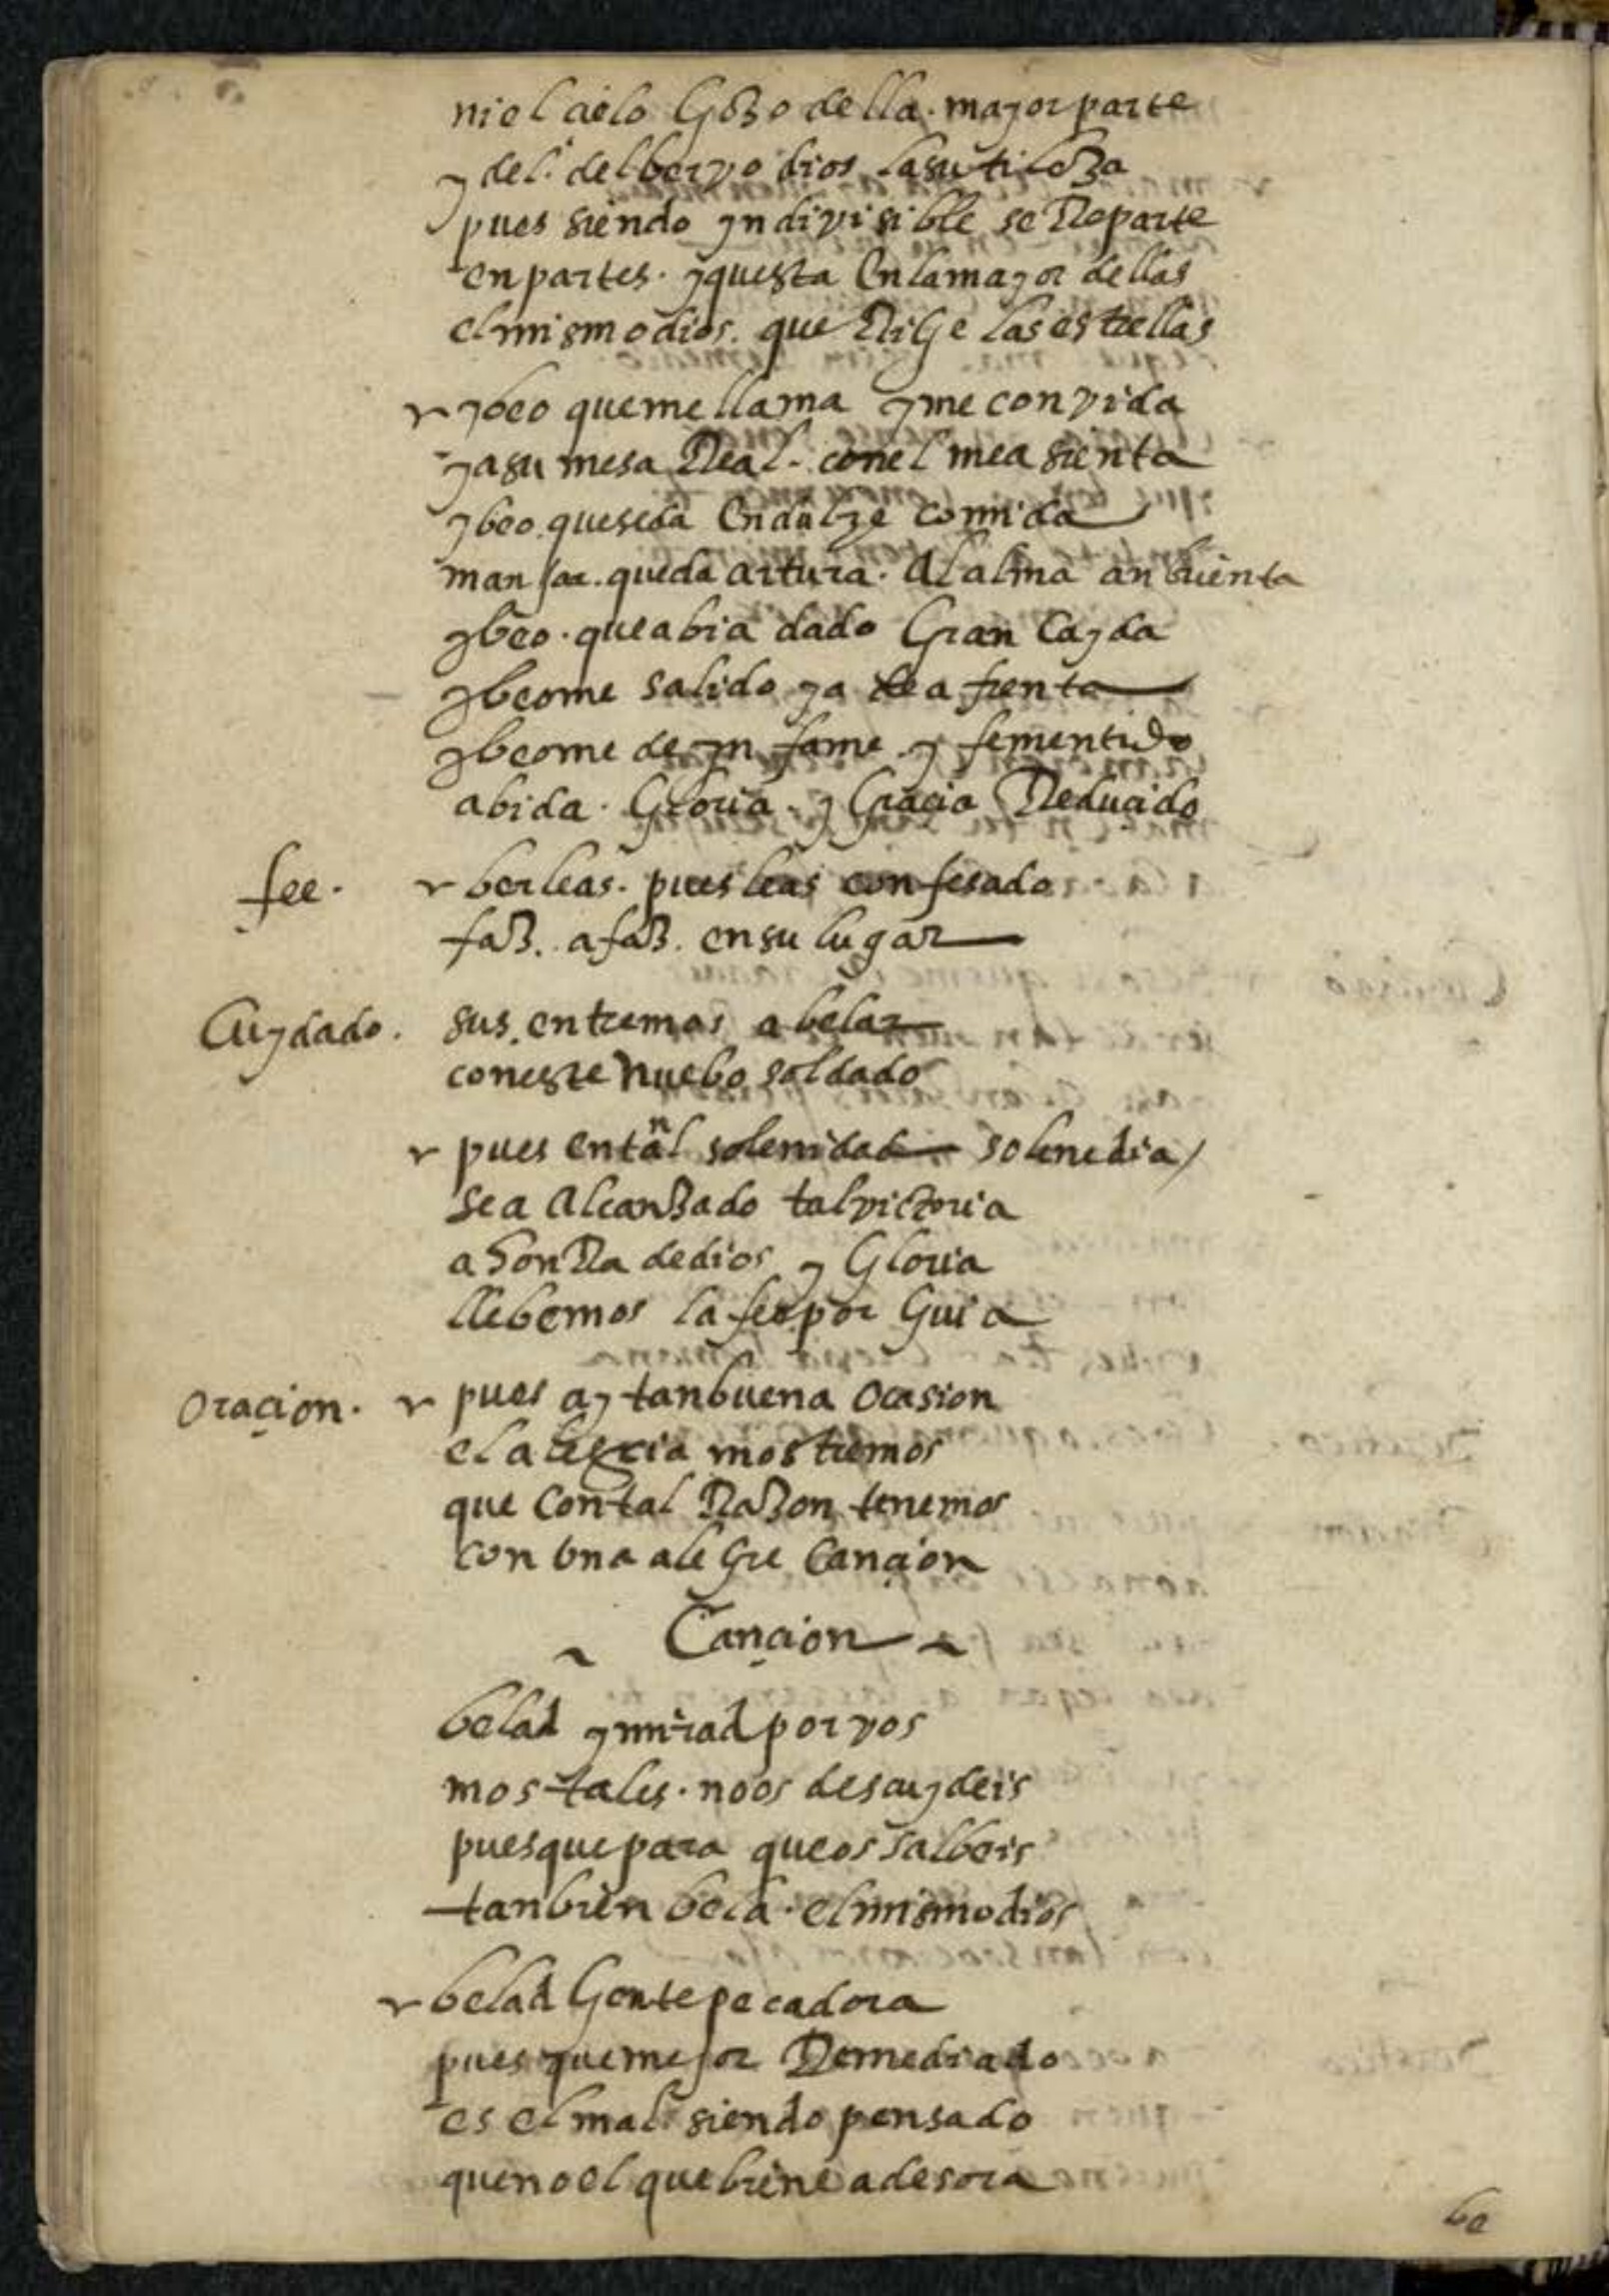 ni el çielo Gozo della. mayor parte
y del. del bervo dios la sutileza
pues siendo yndivisible se Reparte
en partes. y questa En la mayor dellas
el mismo dios. que RiGe las estrellas
y beo que me llama y me convida
y a su mesa Real. con el me a sienta
y beo. que se da En dulze comida
manjar. que da artura. Al alma anbrienta
y beo. que abia dado Gran Cayda
y beome salido ya de afrenta
y beome de ynfame y fementido
a bida. Gloria. y Gracia Reducido
fee. berleas. pues leas confesado
faz. a faz. en su lugar
Cuydado. sus. entremos a belar
con este nuebo soldado
pues en tan solenidad solene dia
se a Alcanzado tal victoria
a honRa de dios y Gloria
llebemos la fee por Guia
oraçion. pues ay tan buena ocasion
el alegria mostremos
que Con tal Razon tenemos
con una aleGre Cançion
Cançion
belad y mirad por vos
mortales. no os descuydeis
pues que para que os salbeis
tanbien bela. el mismo dios
belad Gente pecadora
pues que mejor Remediado
es el mal siendo pensado
que no el que biene a desora
be